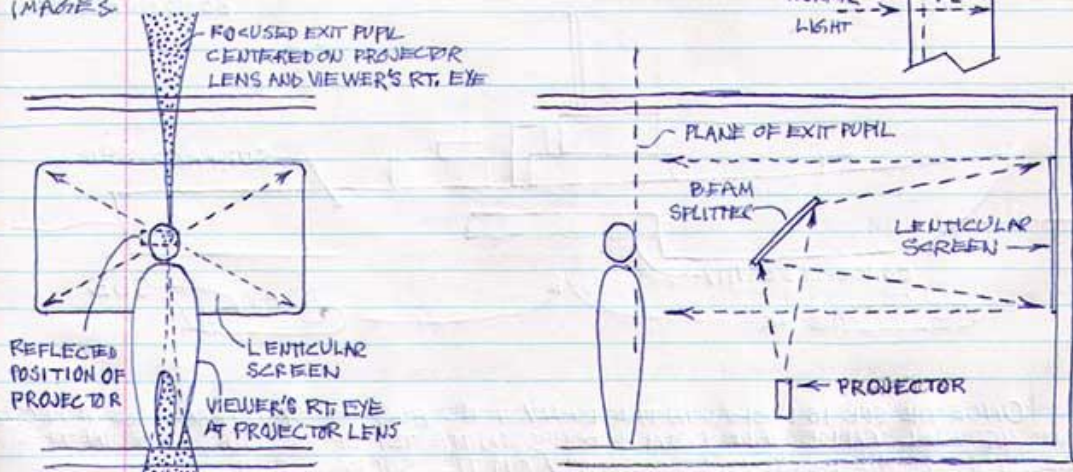 IMAGES
LIGHT
FOCUSED EXIT PUPIL
CENTERED ON PROJECTOR
LENS AND VIEWER'S RT. EYE
PLANE OF EXIT PUPIL
BEAM
SPLITTER
LENTICULAR
SCREEN
REFLECTED
POSITION OF
PROJECTOR
LENTICULAR
SCREEN
VIEWER'S RT. EYE
AT PROJECTOR LENS
PROJECTOR